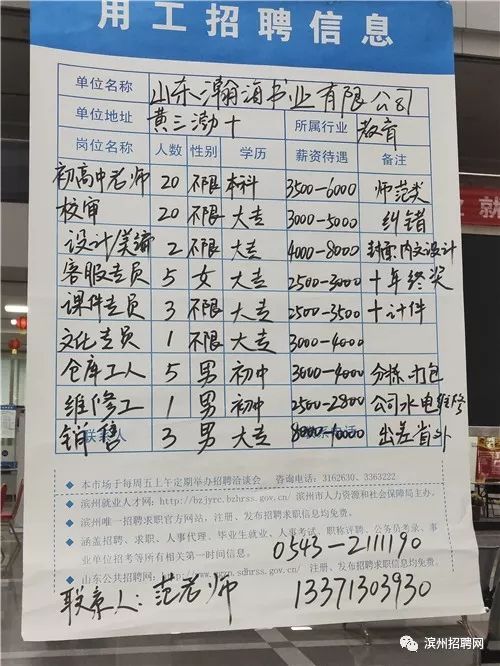 用工招聘信息
单位名称 山东瀚海书业有限公司
单位地址 黄三渤十 所属行业 教育
岗位名称 人数 性别 学历 薪资待遇 备注
初高中老师 20 不限 本科 3500-6000 师范类
校审 20 不限 大专 3000-5000 纠错
设计/美编 2 不限 大专 4000-8000 封面.内文设计
客服专员 5 女 大专 2500-3000 十年终奖
课件专员 3 不限 大专 2500-3500 十计件
文化专员 1 不限 大专 3000-4000
仓库工人 5 男 初中 3000-4000 分拣.打包
维修工 1 男 初中 2500-2800 公司水电维修
销售 3 男 大专 8000-10000 出差省外
◆ 本市场于每周五上午定期举办招聘洽谈会 咨询电话:3162630、3363222
◆ 滨州就业人才网:(http://bzjyrc.bzhrss.gov.cn/ 滨州市人力资源和社会保障局主办。
◆ 滨州唯一招聘求职官方网站,注册、发布招聘求职信息均免费。
◆ 涵盖招聘、求职、人事代理、毕业生就业、人事考试、职称评聘、公务员考录、事
业单位招考等所有相关第一时间信息。
0543-2111190
◆ 山东公共招聘网:
sdhrss.gov.cn/ 注册、发布招聘求职信息均免费。
联系人:范老师 13371303930
滨州招聘网